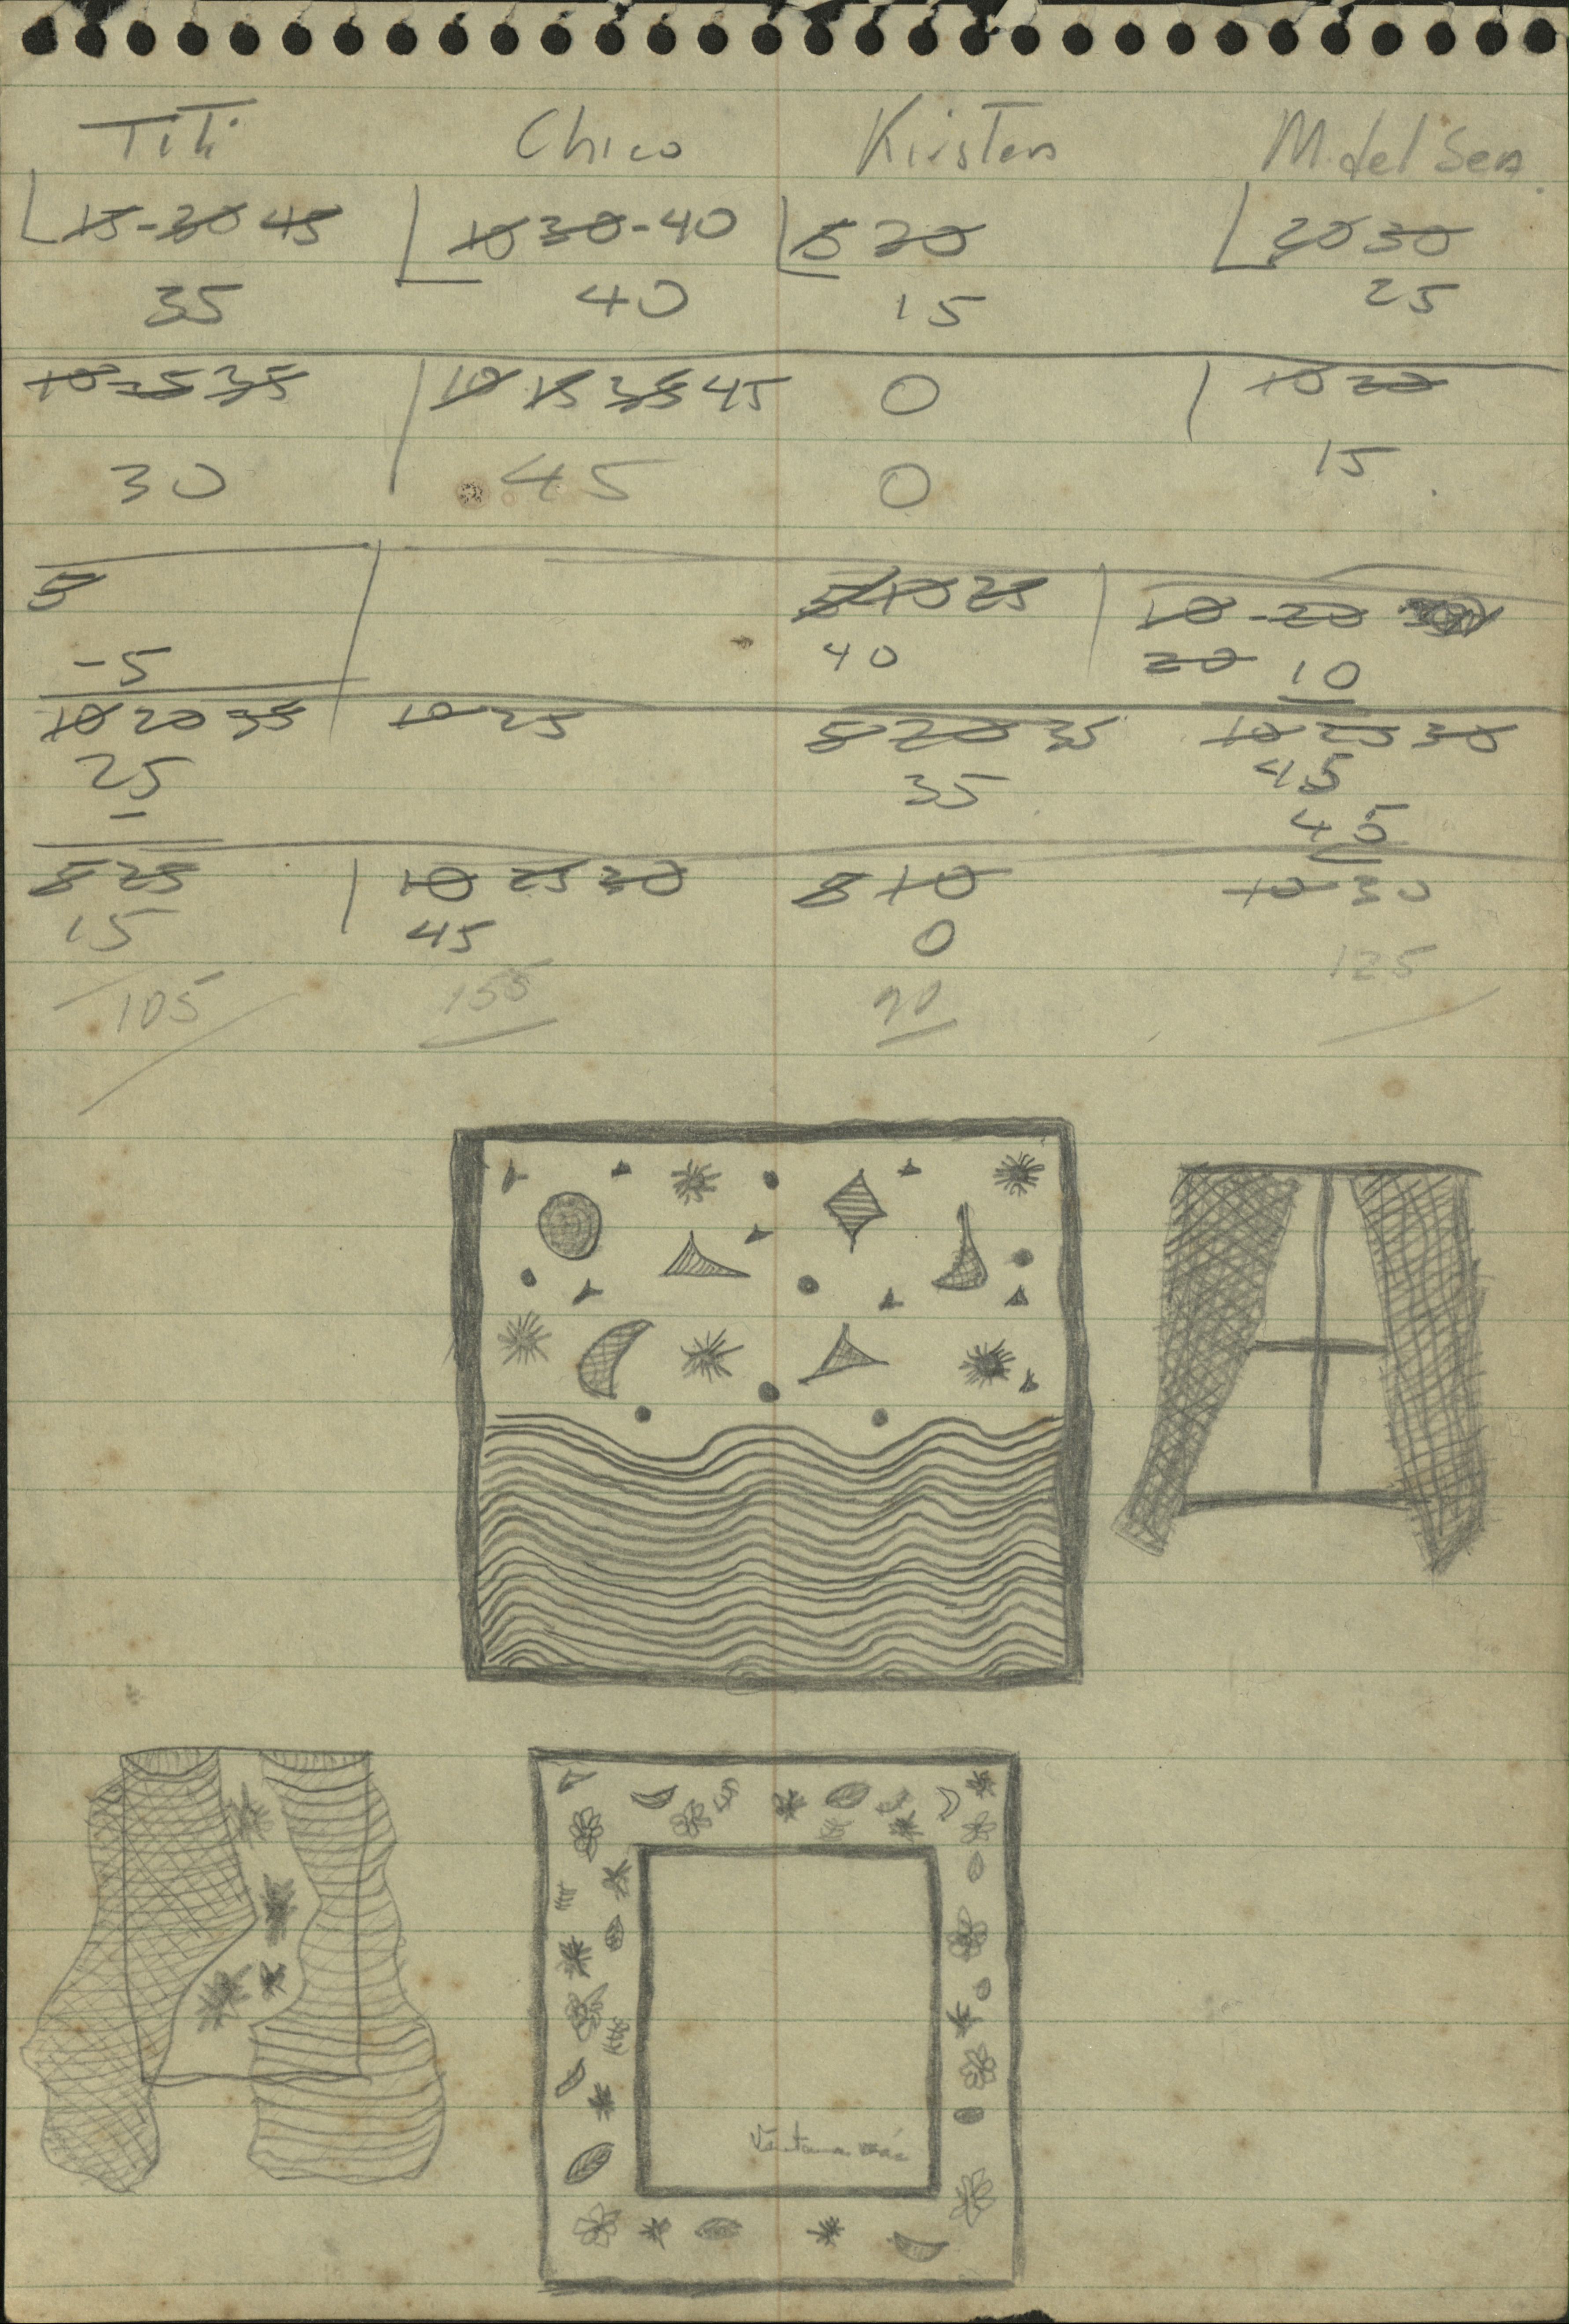 Titi Chico Kirsten M. del Sen.
15-30 45 10 30-40 5 20 20 30
35 40 15 25
10 25 35 10 15 35 45 0 10 20
30 45 0 15
5 5 10 25 10-20
-5 40 20 10
10 20 35 10 25 5 20 35 10 25 30
25 35 45
45
5 25 10 25 30 5 10 10 30
15 45 0
105 155 90 125
Ventana